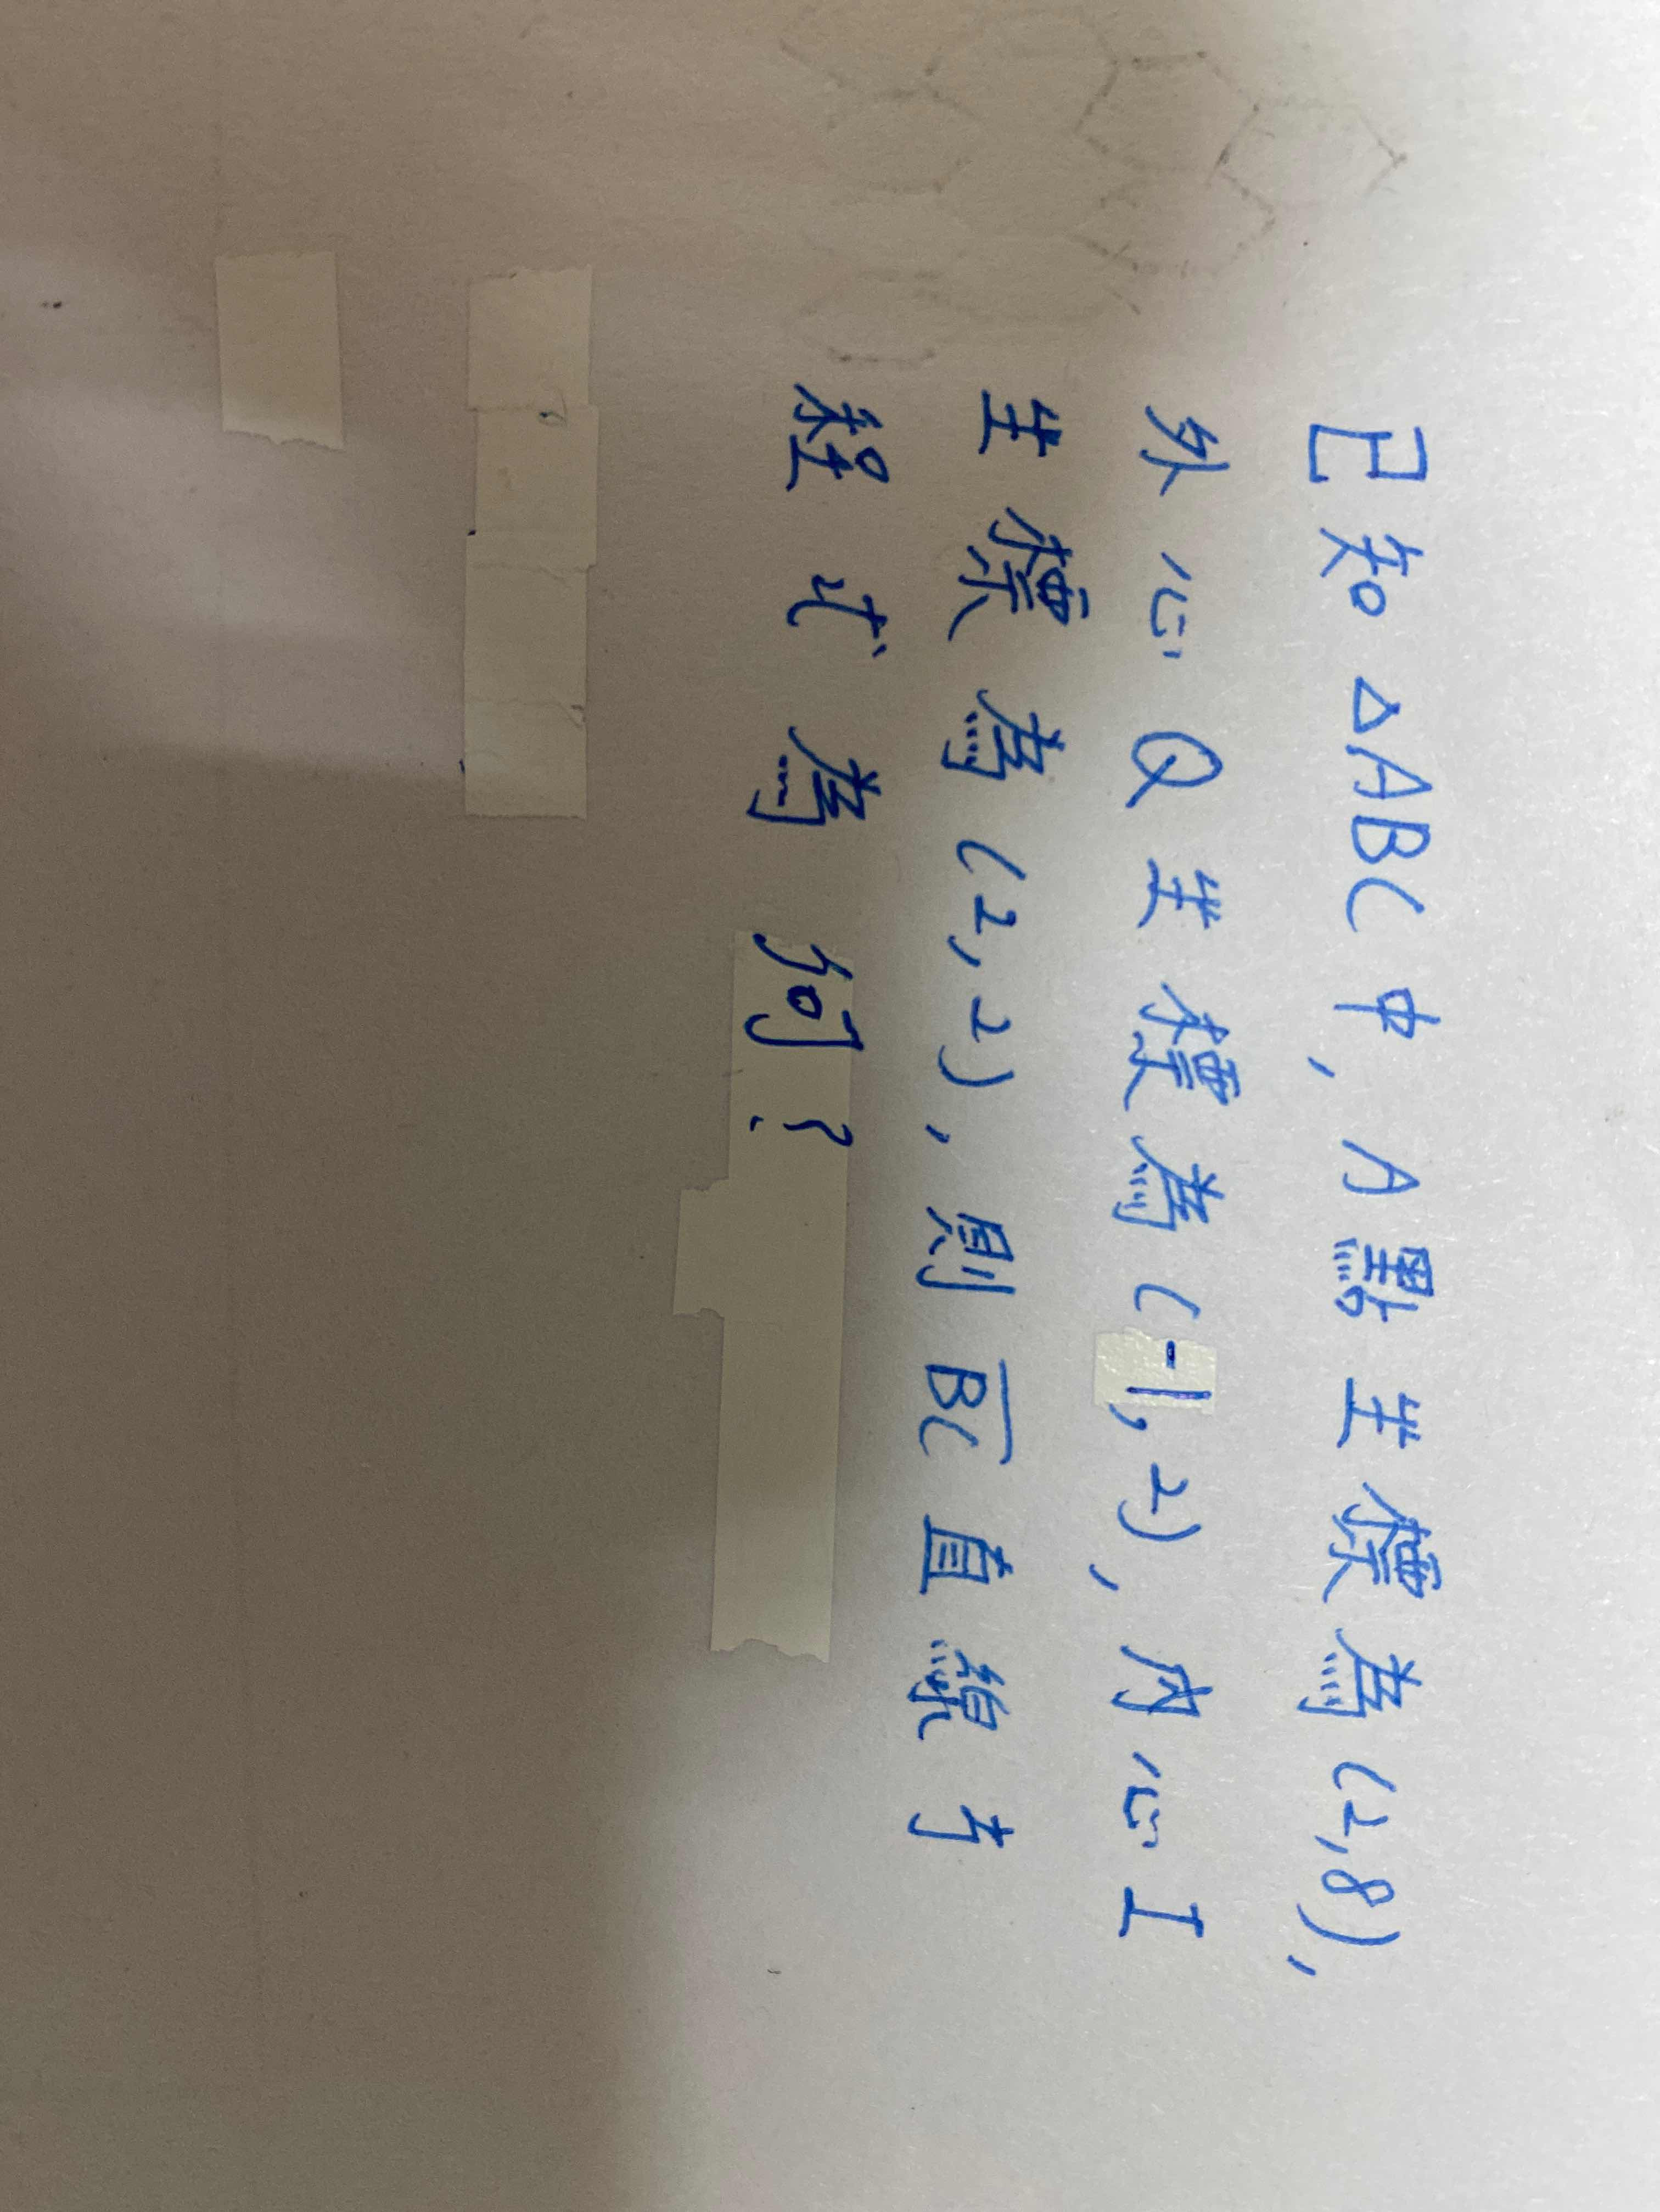 已知△ABC中,A點坐標為(2,8),
外心Q坐標為(-1,2),內心I
坐標為(2,2),則BC直線方
程式為何?